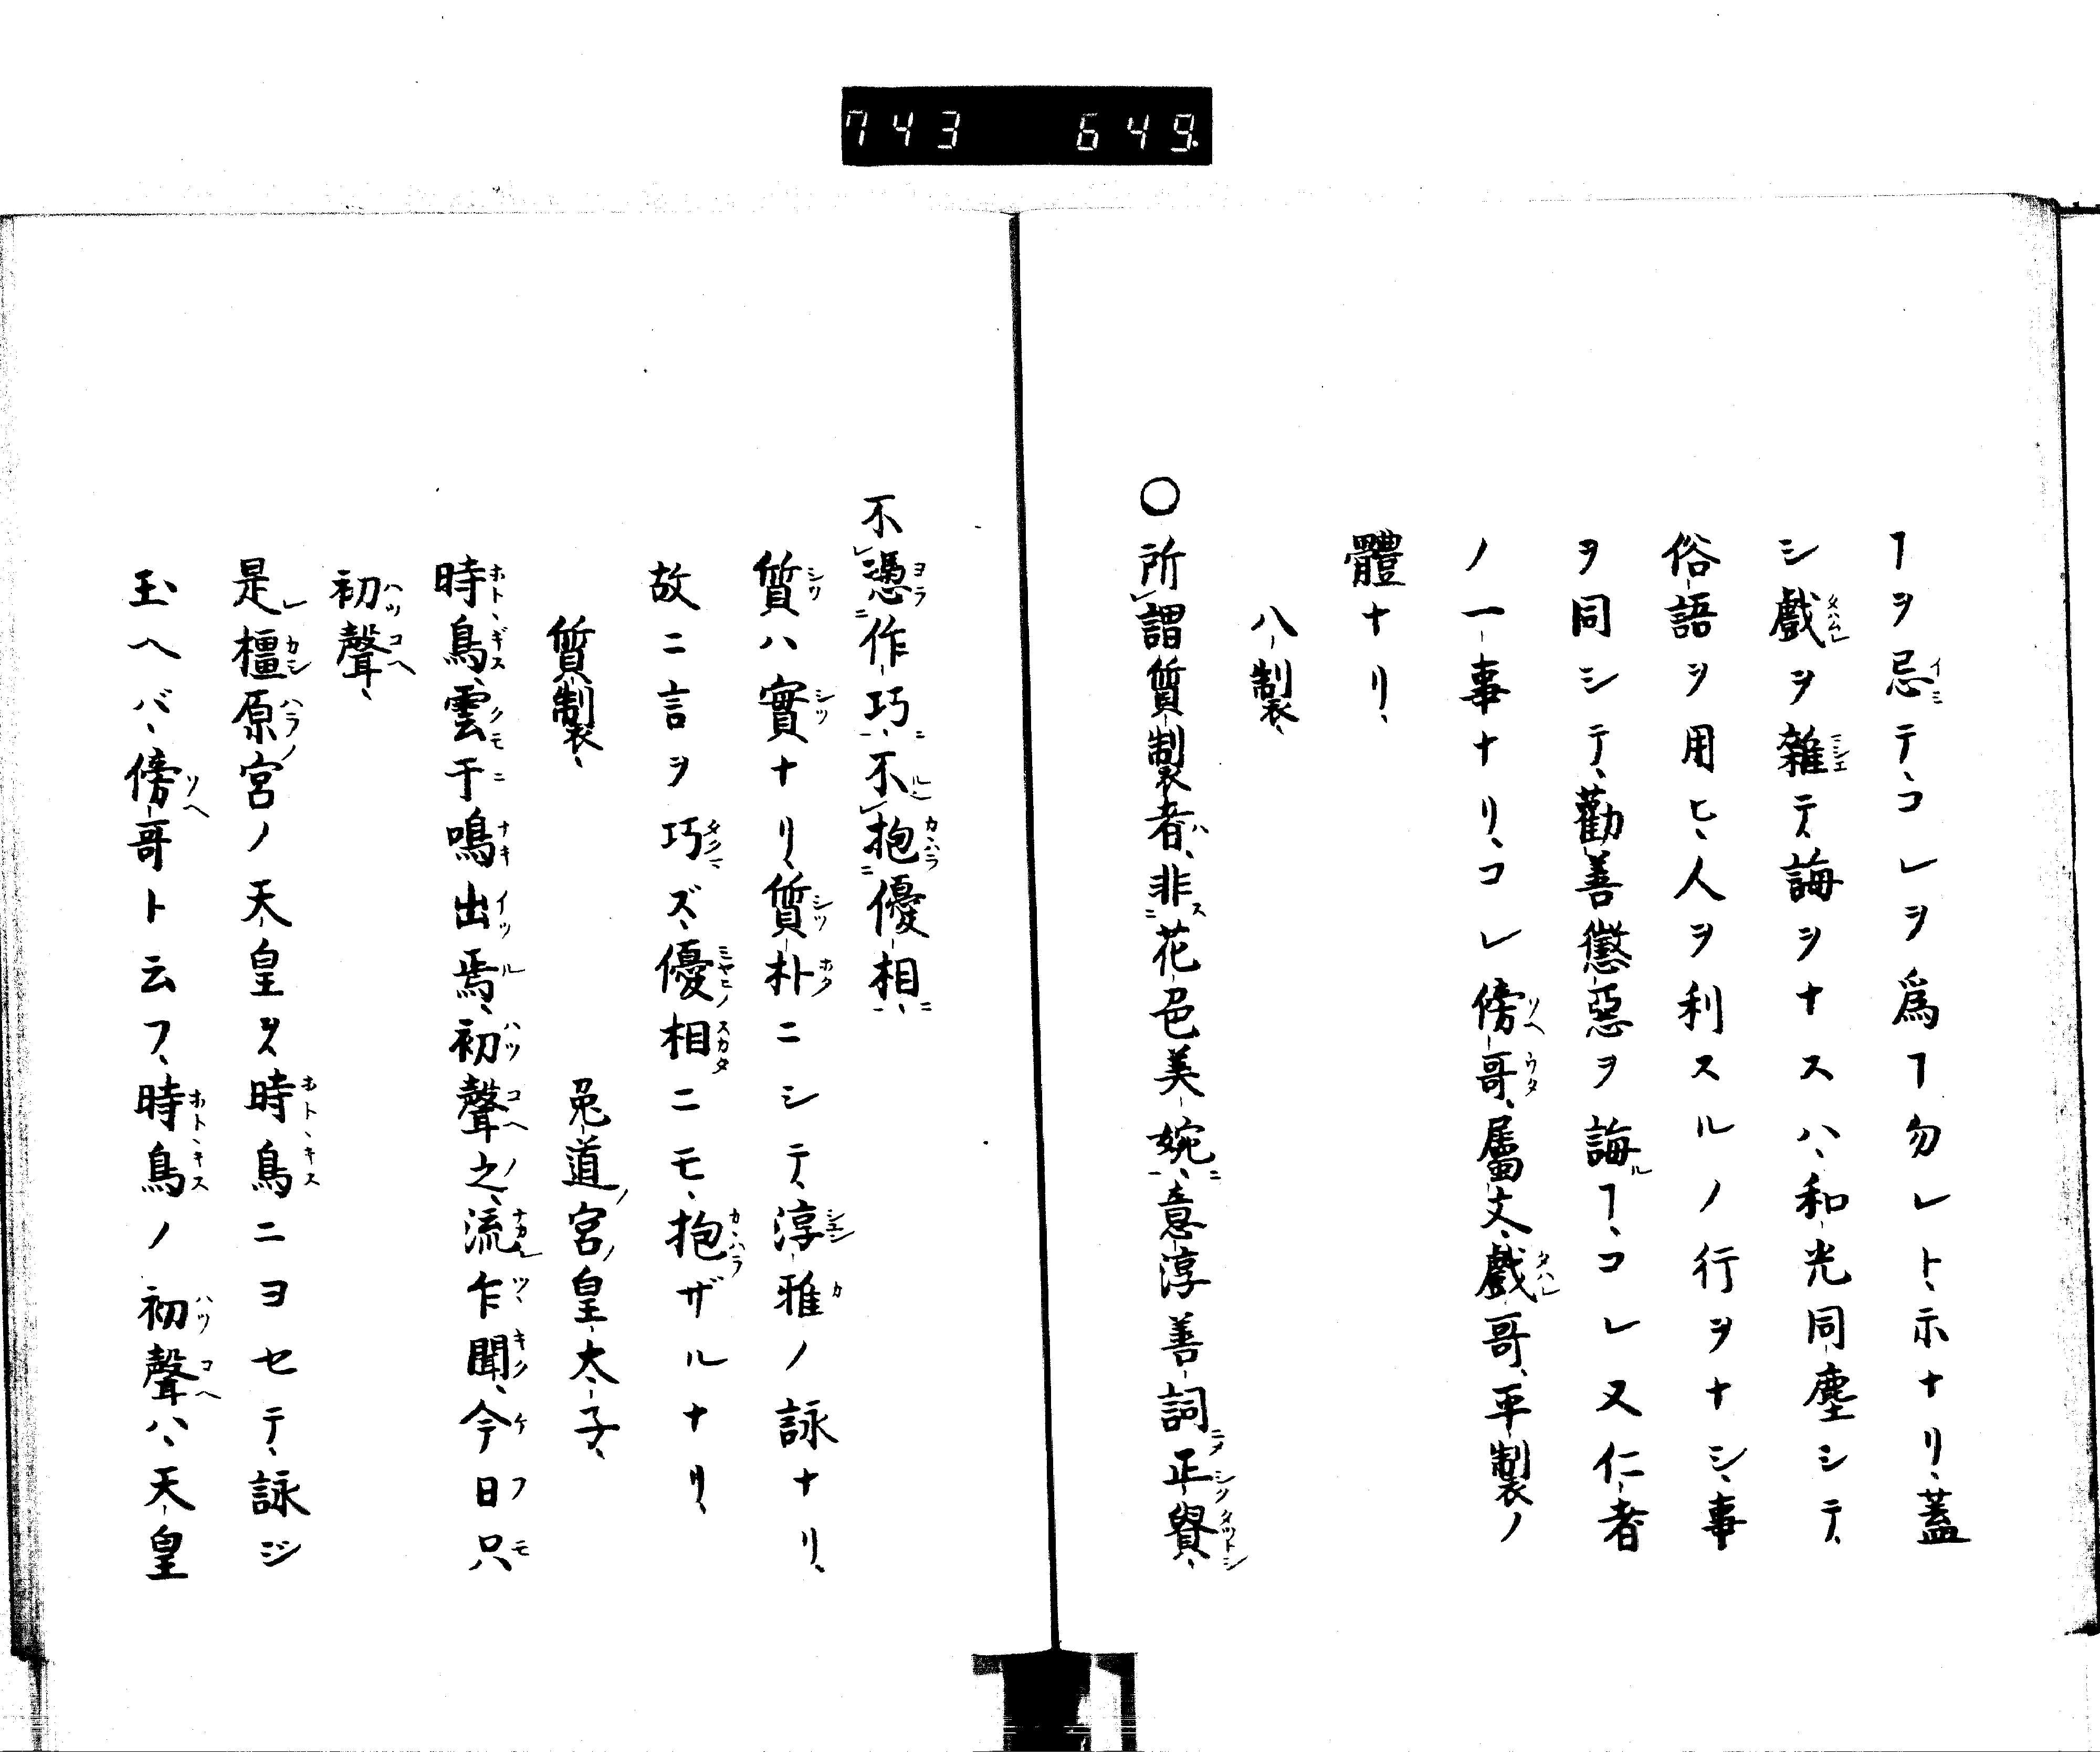 743 649.
ヿヲ忌テ、コレヲ爲ヿ勿レト、示ナリ、蓋
シ戲ヲ雜テ、誨ヲナスハ、和光同塵シテ、
俗語ヲ用ヒ、人ヲ利スルノ行ヲナシ、事
ヲ同シテ、勸善懲惡ヲ誨ルヿ、コレ又仁者
ノ一事ナリ、コレ傍哥、屬文、戲哥、平製ノ
體ナリ、
八製、
〇所謂質製者、非花色美婉、意淳善詞正貴、
不憑作巧、不抱優相、
質ハ實ナリ、質朴ニシテ、淳雅ノ詠ナリ、
故ニ言ヲ巧ズ、優相ニモ、抱ザルナリ、
質製、 兎道宮皇太子、
時鳥、雲于鳴出焉、初聲之、流乍聞、今日只
初聲、
是橿原宮ノ天皇ヲ、時鳥ニヨセテ、詠ジ
玉ヘバ、傍哥ト云フ、時鳥ノ初聲ハ、天皇